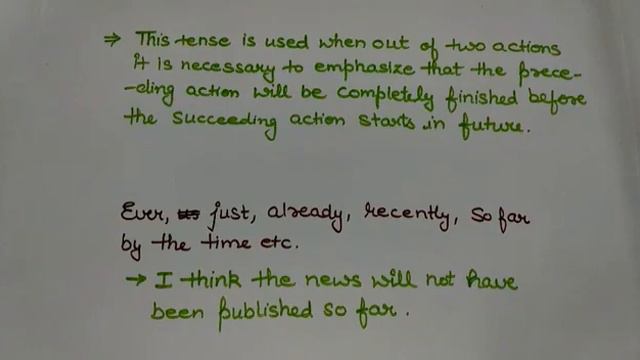 ⇒ This tense is used when out of two actions
it is necessary to emphasize that the prece-
-ding action will be completely finished before
the succeeding action starts in future.
Ever, just, already, recently, so far
by the time etc.
→ I think the news will not have
been published so far.